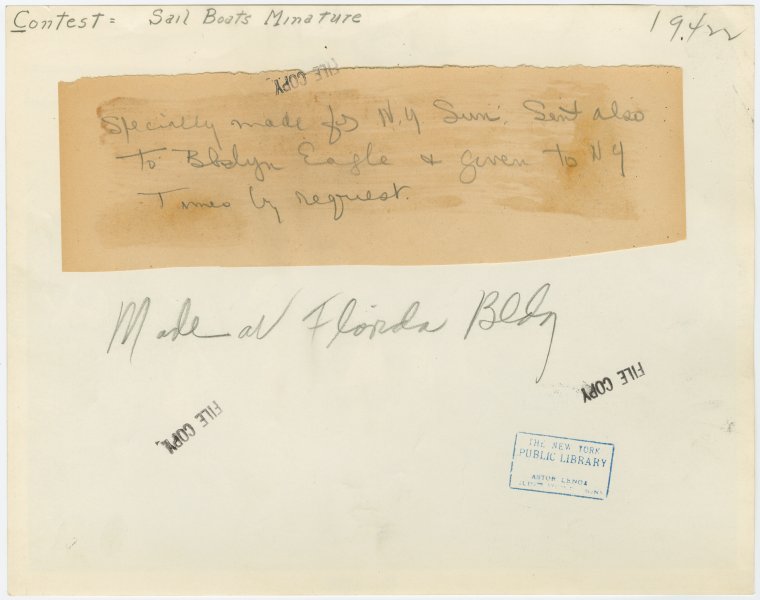 Contest = Sail Boats Minature
19.422
FILE COPY
Specially made for N.Y Sun. Sent also
to Bklyn Eagle + given to N Y
Times by request.
Made at Florida Bldg
FILE COPY
FILE COPY
THE NEW YORK
PUBLIC LIBRARY
ASTOR LENOX